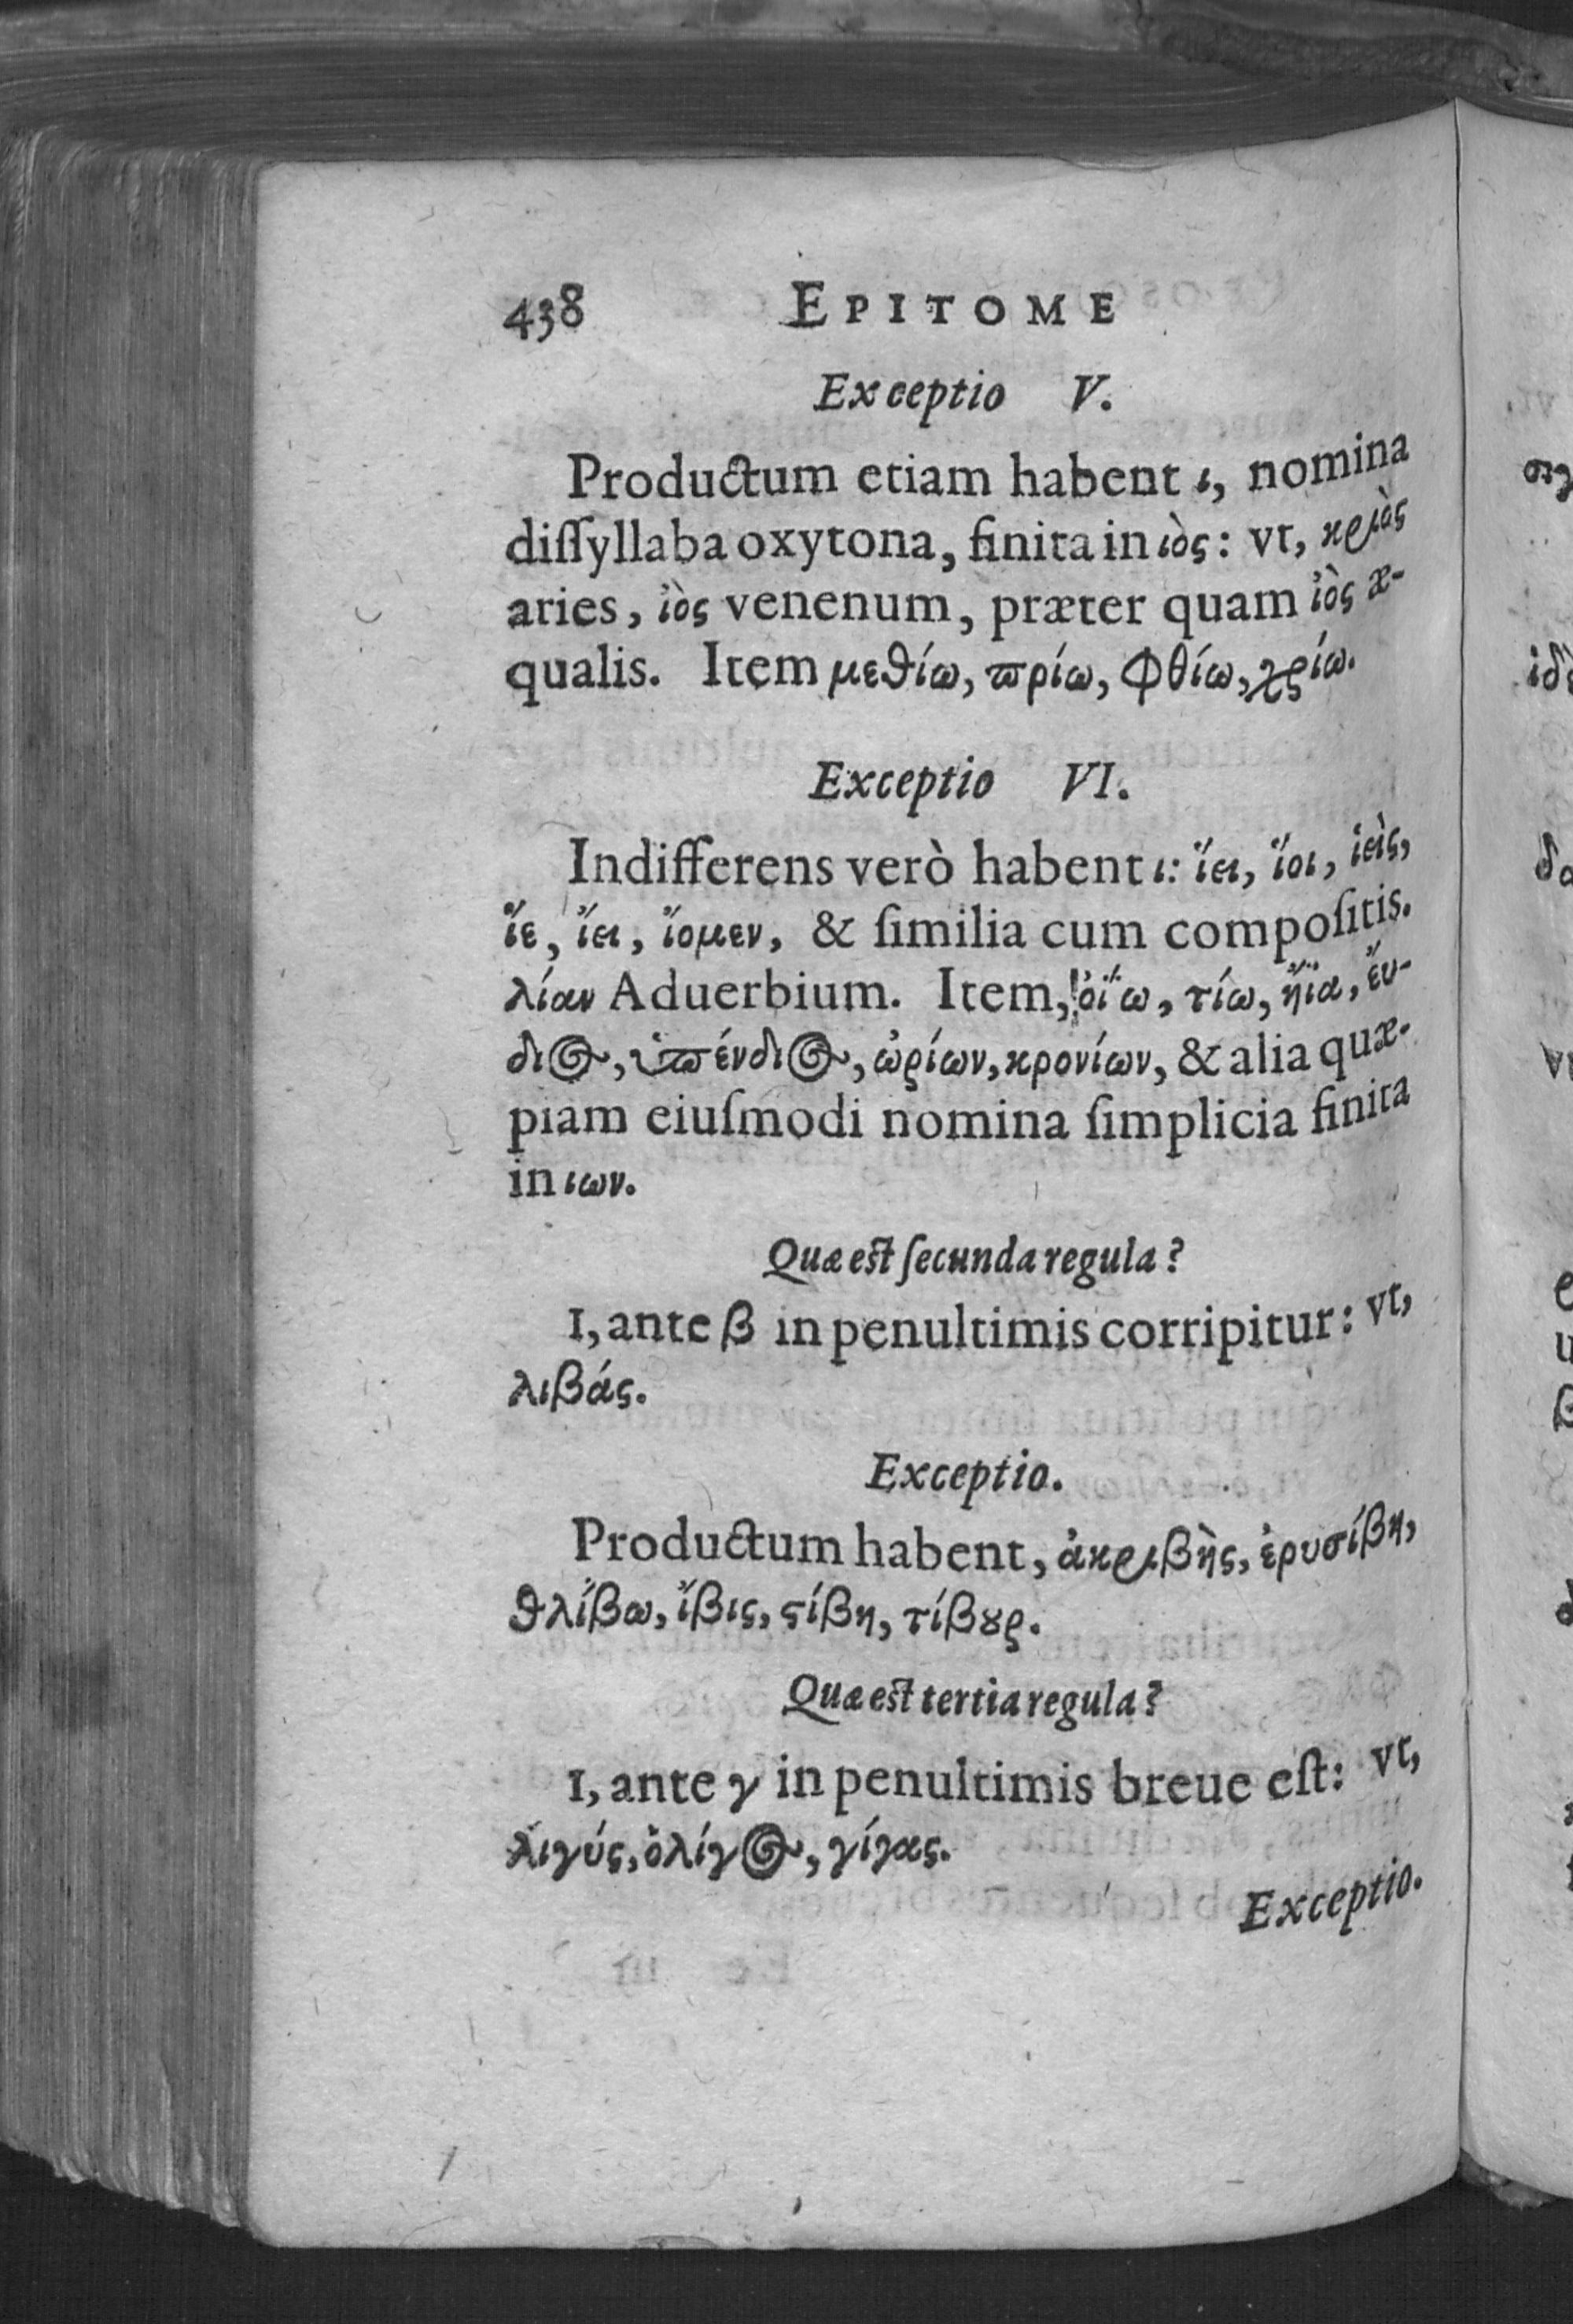 438 EPITOME
Exceptio V.
Productum etiam habent ι, nomina
diſſyllaba oxytona, finita in ιὸς: vt, κριὸς
aries, ἰὸς venenum, præter quam ἰὸς æ-
qualis. Item μεθίω, πρίω, φθίω, χρίω.
Exceptio VI.
Indifferens verò habent ι: ἵει, ἵοι, ἱεὶς,
ἵε, ἵει, ἵομεν, & ſimilia cum compoſitis.
λίαν Aduerbium. Item, ὀΐω, τίω, ἤϊα, ἔν-
διος, ὑπένδιος, ὠρίων, κρονίων, & alia quæ-
piam eiuſmodi nomina ſimplicia finita
in ιων.
Quæ est ſecunda regula?
I, ante β in penultimis corripitur: vt,
λιβάς.
Exceptio.
Productum habent, ἀκριβὴς, ἐρυσίβη,
θλίβω, ἴβις, ϛίβη, τίβȣρ.
Quæ est tertia regula?
I, ante γ in penultimis breue eſt: vt,
λιγύς, ὀλίγος, γίγας.
Exceptio.